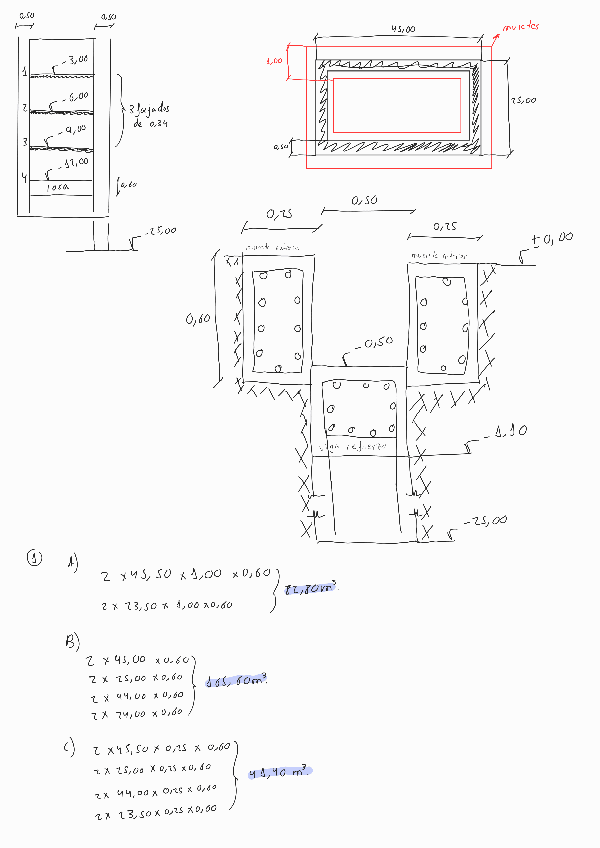 0,50
0,50
1
-3,00
2
-6,00
3
-9,00
4
-12,00
losa
0,60
3 forjados
de 0,34
-25,00
45,00
muretes
1,00
25,00
0,50
0,25
0,50
0,25
murete
murete
± 0,00
0,60
-0,50
viga refuerzo
-1,10
-25,00
1
A)
2 x 45,50 x 1,00 x 0,60
2 x 23,50 x 1,00 x 0,60
82,80 m³
B)
2 x 45,00 x 0,60
2 x 25,00 x 0,60
2 x 44,00 x 0,60
2 x 24,00 x 0,60
165,60 m².
C)
2 x 45,50 x 0,25 x 0,60
2 x 25,00 x 0,25 x 0,60
2 x 44,00 x 0,25 x 0,60
2 x 23,50 x 0,25 x 0,60
41,40 m³.